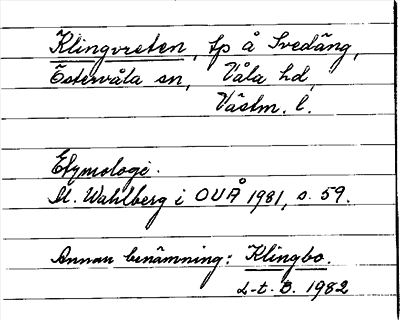 Klingvreten, tp å Svedäng,
Östervåla sn, Våla hd,
Västm. l.
Etymologi.
M. Wahlberg i OUÅ 1981, s. 59.
Annan benämning: Klingbo.
L-t. B. 1982